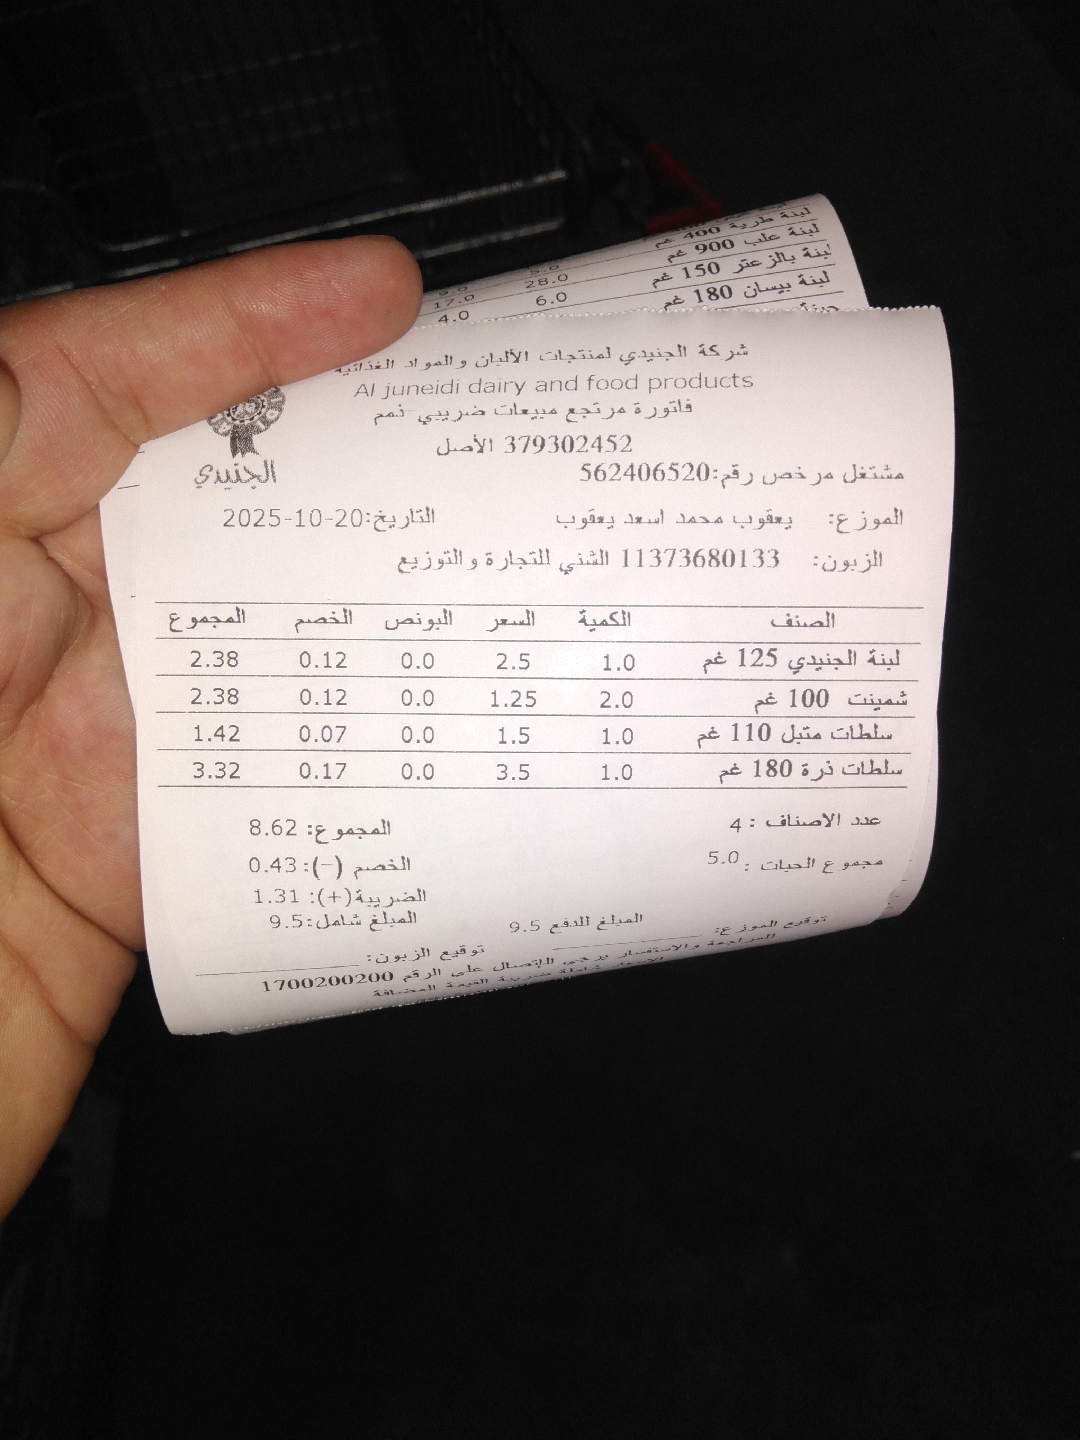 لبنة طرية 400 غم
لبنة علب 900 غم 5.0 9.0
لبنة بالزعتر 150 غم 28.0 17.0
لبنة بيسان 180 غم 6.0 4.0
شركة الجنيدي لمنتجات الألبان والمواد الغذائية
Al juneidi dairy and food products
فاتورة مرتجع مبيعات ضريبي ذمم
379302452 الأصل
الجنيدي
مشتغل مرخص رقم:562406520
الموزع: يعقوب محمد اسعد يعقوب التاريخ:2025-10-20
الزبون: 11373680133 الشني للتجارة والتوزيع
الصنف الكمية السعر البونص الخصم المجموع
لبنة الجنيدي 125 غم 1.0 2.5 0.0 0.12 2.38
شمينت 100 غم 2.0 1.25 0.0 0.12 2.38
سلطات متبل 110 غم 1.0 1.5 0.0 0.07 1.42
سلطات ذرة 180 غم 1.0 3.5 0.0 0.17 3.32
عدد الاصناف : 4 المجموع: 8.62
مجموع الحبات : 5.0 الخصم (-): 0.43
الضريبة(+): 1.31
المبلغ للدفع 9.5 المبلغ شامل:9.5
توقيع الموزع: توقيع الزبون:
للمراجعة والاستفسار يرجى الإتصال على الرقم 1700200200
الاسعار شاملة ضريبة القيمة المضافة